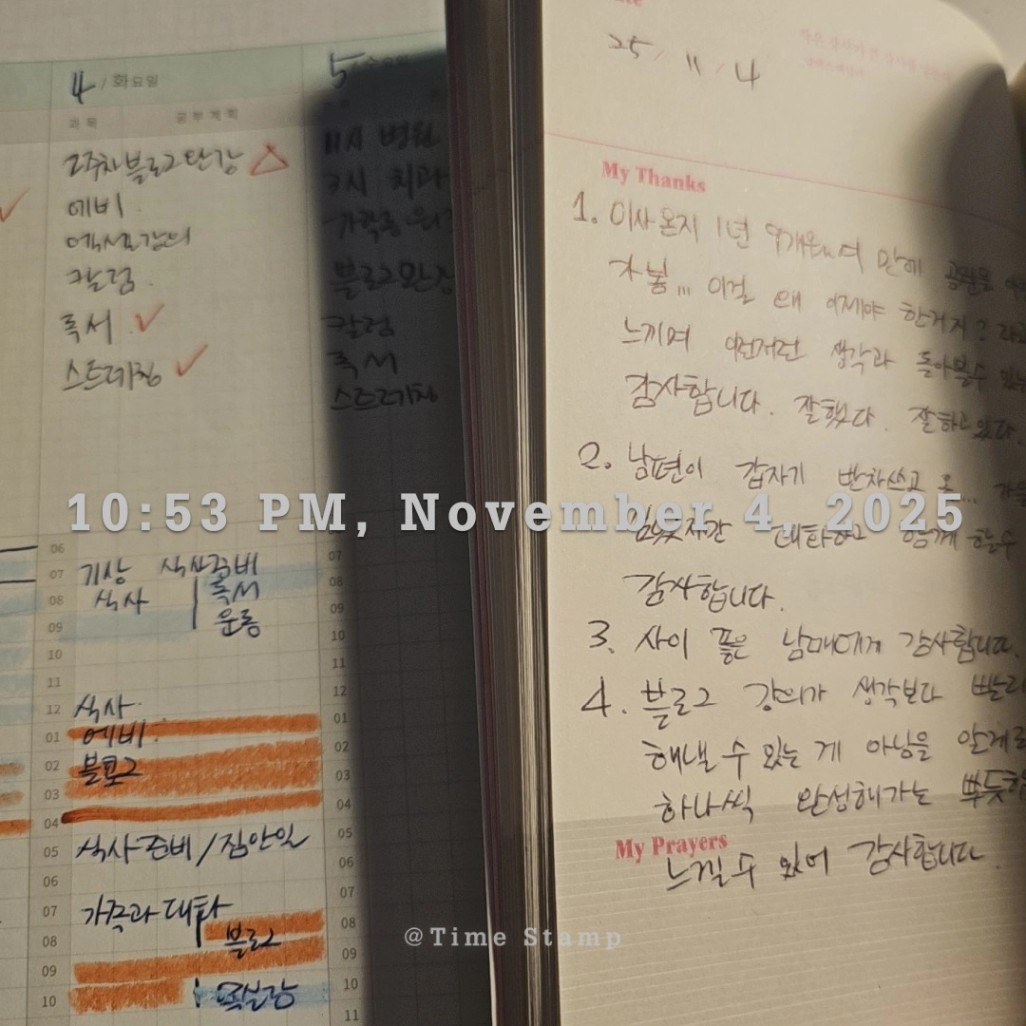 4 / 화요일
과목 공부계획
2주차 블로그 완강 △
에비
엑셀 강의
칼럼
독서 ✓
스트레칭 ✓
5 / 수요일
11시 병원
3시 치과
블로그 완강
칼럼
독서
스트레칭
06
07 기상 식사준비
08 식사 독서
09 운동
10
11
12 식사
01 에비
02 블로그
03
04
05 식사준비/집안일
06
07 가족과 대화
08 블로그
09
10
07
08
09
10
11
12
01
02
03
04
05
06
07
08
09
10
11
25 / 11 / 4
My Thanks
1. 이사온지 1년 9개월 만에
가봄... 이걸 왜 이제야 한거지?
느끼며 이런저런 생각과 돌아볼수
감사합니다. 잘했다. 잘하고있다.
2. 남편이 갑자기 반차쓰고
대화하고 함께 할수
감사합니다.
3. 사이 좋은 남매에게 감사합니다.
4. 블로그 강의가 생각보다 빨리
해낼 수 있는 게 아님을 알게
하나씩 완성해가는
My Prayers
느낄 수 있어 감사합니다.
10:53 PM, November 4, 2025
@Time Stamp